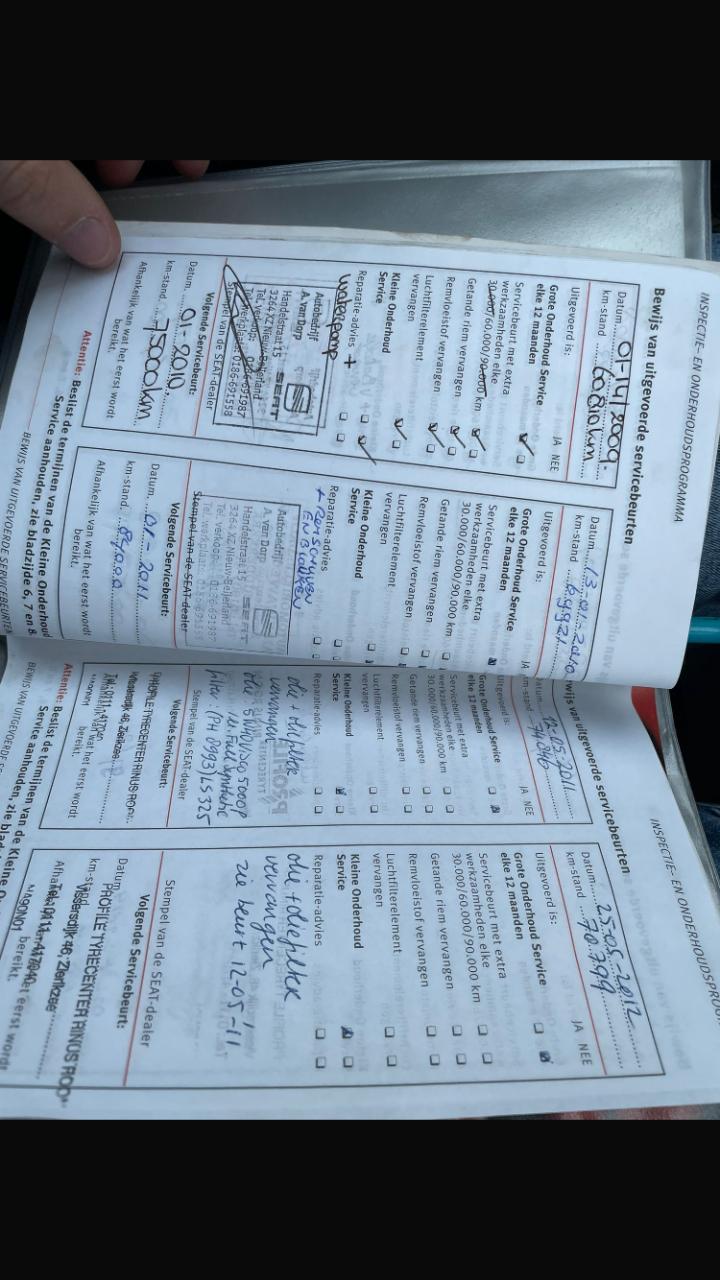 INSPECTIE- EN ONDERHOUDSPROGRAMMA
Bewijs van uitgevoerde servicebeurten
Datum
km-stand 60810km.
Uitgevoerd is: JA NEE
Grote Onderhoud Service
elke 12 maanden
Servicebeurt met extra
werkzaamheden elke
30.000/60.000/90.000 km
Getande riem vervangen
Remvloeistof vervangen
Luchtfilterelement
vervangen
Kleine Onderhoud
Service
Reparatie-advies +
waterpomp
Autobedrijf
A. van Dorp
Handelstraat 15
3264 XZ Nieuw-Beijerland
SEAT
Stempel van de SEAT-dealer
Volgende Servicebeurt:
Datum 01-2010
km-stand 75000km
Afhankelijk van wat het eerst wordt
bereikt.
Datum 13-01-2010
km-stand
Uitgevoerd is:
Grote Onderhoud Service
elke 12 maanden
Servicebeurt met extra
werkzaamheden elke
30.000/60.000/90.000 km
Getande riem vervangen
Remvloeistof vervangen
Luchtfilterelement
vervangen
Kleine Onderhoud
Service
Reparatie-advies
+ REMSCHIJVEN
EN BLOKKEN
Autobedrijf
A. van Dorp
Handelstraat 15
3264 XZ Nieuw-Beijerland
Stempel van de SEAT-dealer
Volgende Servicebeurt:
Datum 01-2011
km-stand
Afhankelijk van wat het eerst wordt
bereikt.
Attentie: Beslist de termijnen van de Kleine Onderhoud
Service aanhouden, zie bladzijde 6, 7 en 8.
BEWIJS VAN UITGEVOERDE SERVICEBEURTEN
INSPECTIE- EN ONDERHOUDSPRO
wijs van uitgevoerde servicebeurten
Datum 12-05-2011
km-stand
Uitgevoerd is: JA NEE
Grote Onderhoud Service
elke 12 maanden
Servicebeurt met extra
werkzaamheden elke
30.000/60.000/90.000 km
Getande riem vervangen
Remvloeistof vervangen
Luchtfilterelement
vervangen
Kleine Onderhoud
Service
Reparatie-advies
olie + oliefilter
vervangen
Full Synthetic
filter:
Stempel van de SEAT-dealer
Volgende Servicebeurt:
PROFILE TYRECENTER RINUS ROO
Vissersdijk 46, Zierikzee
wat het eerst wordt
bereikt.
Datum 25-05-2012
km-stand 70.799
Uitgevoerd is: JA NEE
Grote Onderhoud Service
elke 12 maanden
Servicebeurt met extra
werkzaamheden elke
30.000/60.000/90.000 km
Getande riem vervangen
Remvloeistof vervangen
Luchtfilterelement
vervangen
Kleine Onderhoud
Service
Reparatie-advies
olie + oliefilter
vervangen
zie beurt 12-05-'11
Stempel van de SEAT-dealer
Volgende Servicebeurt:
Datum
PROFILE TYRECENTER RINUS ROO
km-stand
Vissersdijk 46, Zierikzee
bereikt.
Attentie: Beslist de termijnen van de Kleine O
Service aanhouden, zie blad
BEWIJS VAN UITGEVOERDE SE